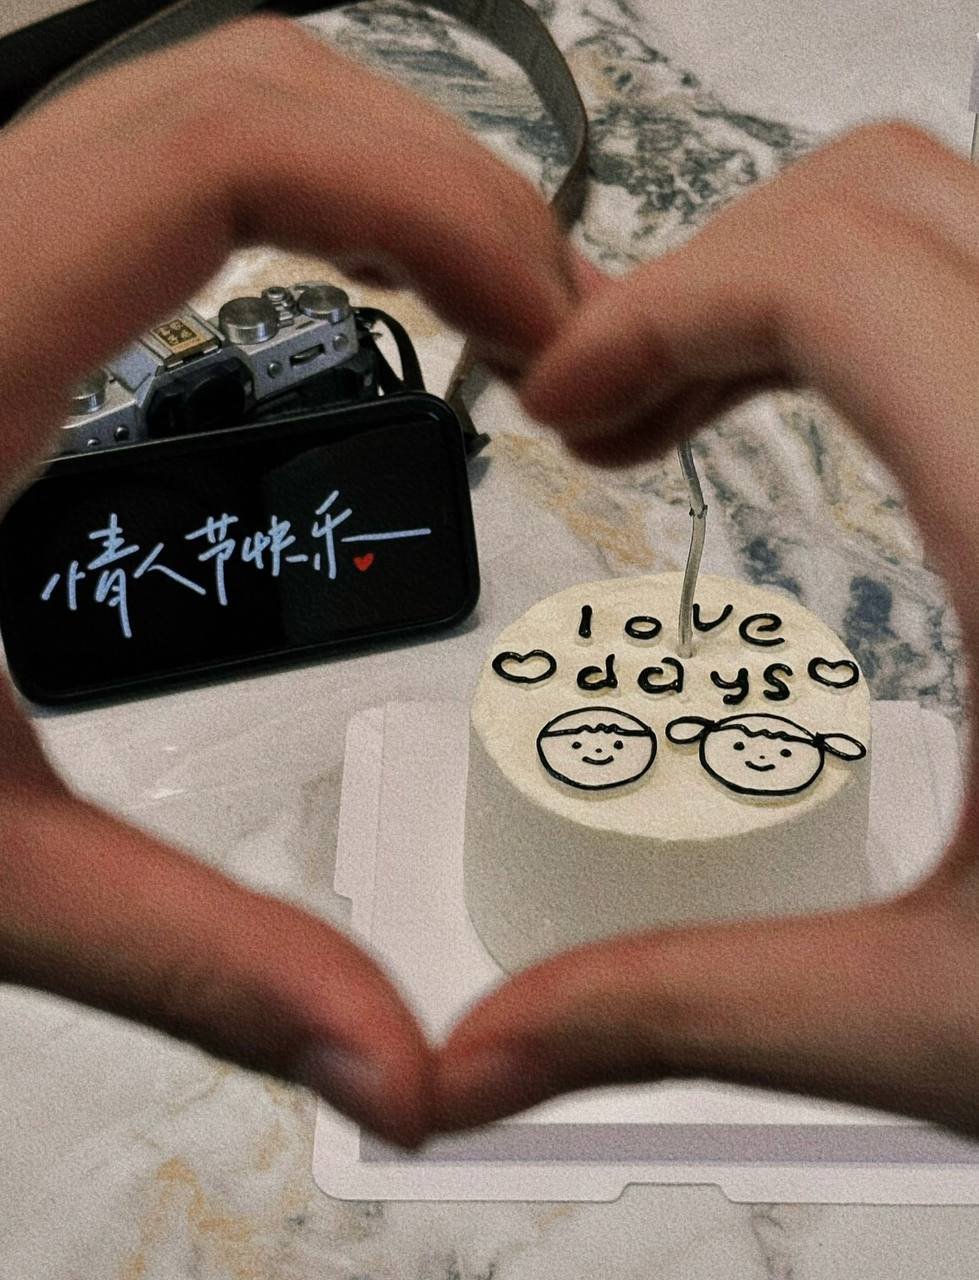 情人节快乐
love
days